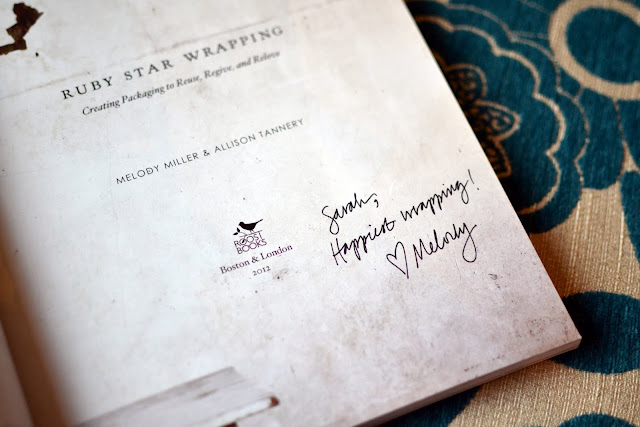 RUBY STAR WRAPPING
Creating Packaging to Reuse, Regive, and Relove
MELODY MILLER & ALLISON TANNERY
ROOST
BOOKS
Boston & London
2012
Sarah,
Happiest wrapping!
♡ Melody